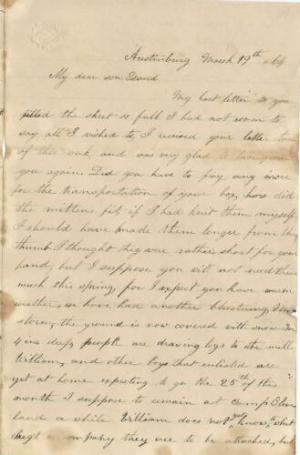 Austinburg March 19th 64
My dear son Edward
My last letter to you
filled the sheet so full I had not room to
say all I wished to, I received your letter
of this week and was very glad to hear from
you again. Did you have to pay any more
for the transportation of your box, how did
the mittens fit, if I had knit them myself
I should have made them longer from the
thumb I thought they were rather short for your
hand, but I suppose you will not need them
much this spring, for I expect you have warm
weather, we have had another blustering
storm, the ground is now covered with snow
4 ins deep, people are drawing logs to the mill
William, and other boys that enlisted are
yet at home expecting to go the 25th of this
month I suppose to remain at camp
a while William does not know what
company they are to be attached, but